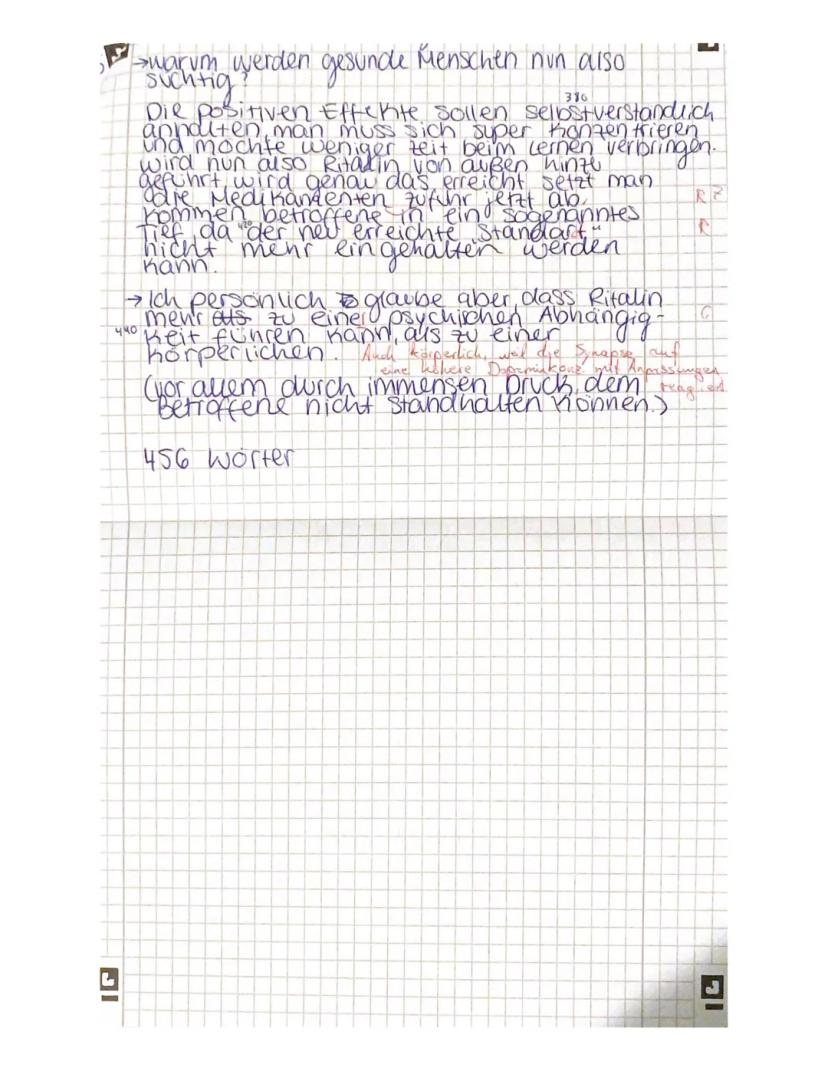 →warum werden gesunde Menschen nun also
süchtig?
380
Die positiven Effekte sollen selbstverständlich
anhalten, man muss sich super konzentrieren
und möchte weniger Zeit beim Lernen verbringen.
wird nun also Ritalin von außen hinzu
geführt, wird genau das erreicht, setzt man
die Medikamenten zufuhr jetzt ab, R?
kommen betroffene in ein sogenanntes
Tief, da "der neu erreichte Standart" R
nicht mehr eingehalten werden
kann.
→ Ich persönlich glaube aber, dass Ritalin
mehr aus zu einer psychischen Abhängig- G
440 keit führen kann, als zu einer
körperlichen. Auch körperlich, weil die Synapse auf
eine höhere Dopaminkonz. mit Anpassungen
(vor allem durch immensen Druck, dem reagiert
Betroffene nicht standhalten können.)
456 Wörter